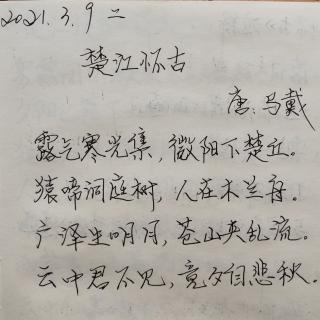 2021.3.9 二
楚江怀古
唐:马戴
露气寒光集,微阳下楚丘。
猿啼洞庭树,人在木兰舟。
广泽生明月,苍山夹乱流。
云中君不见,竟夕自悲秋。